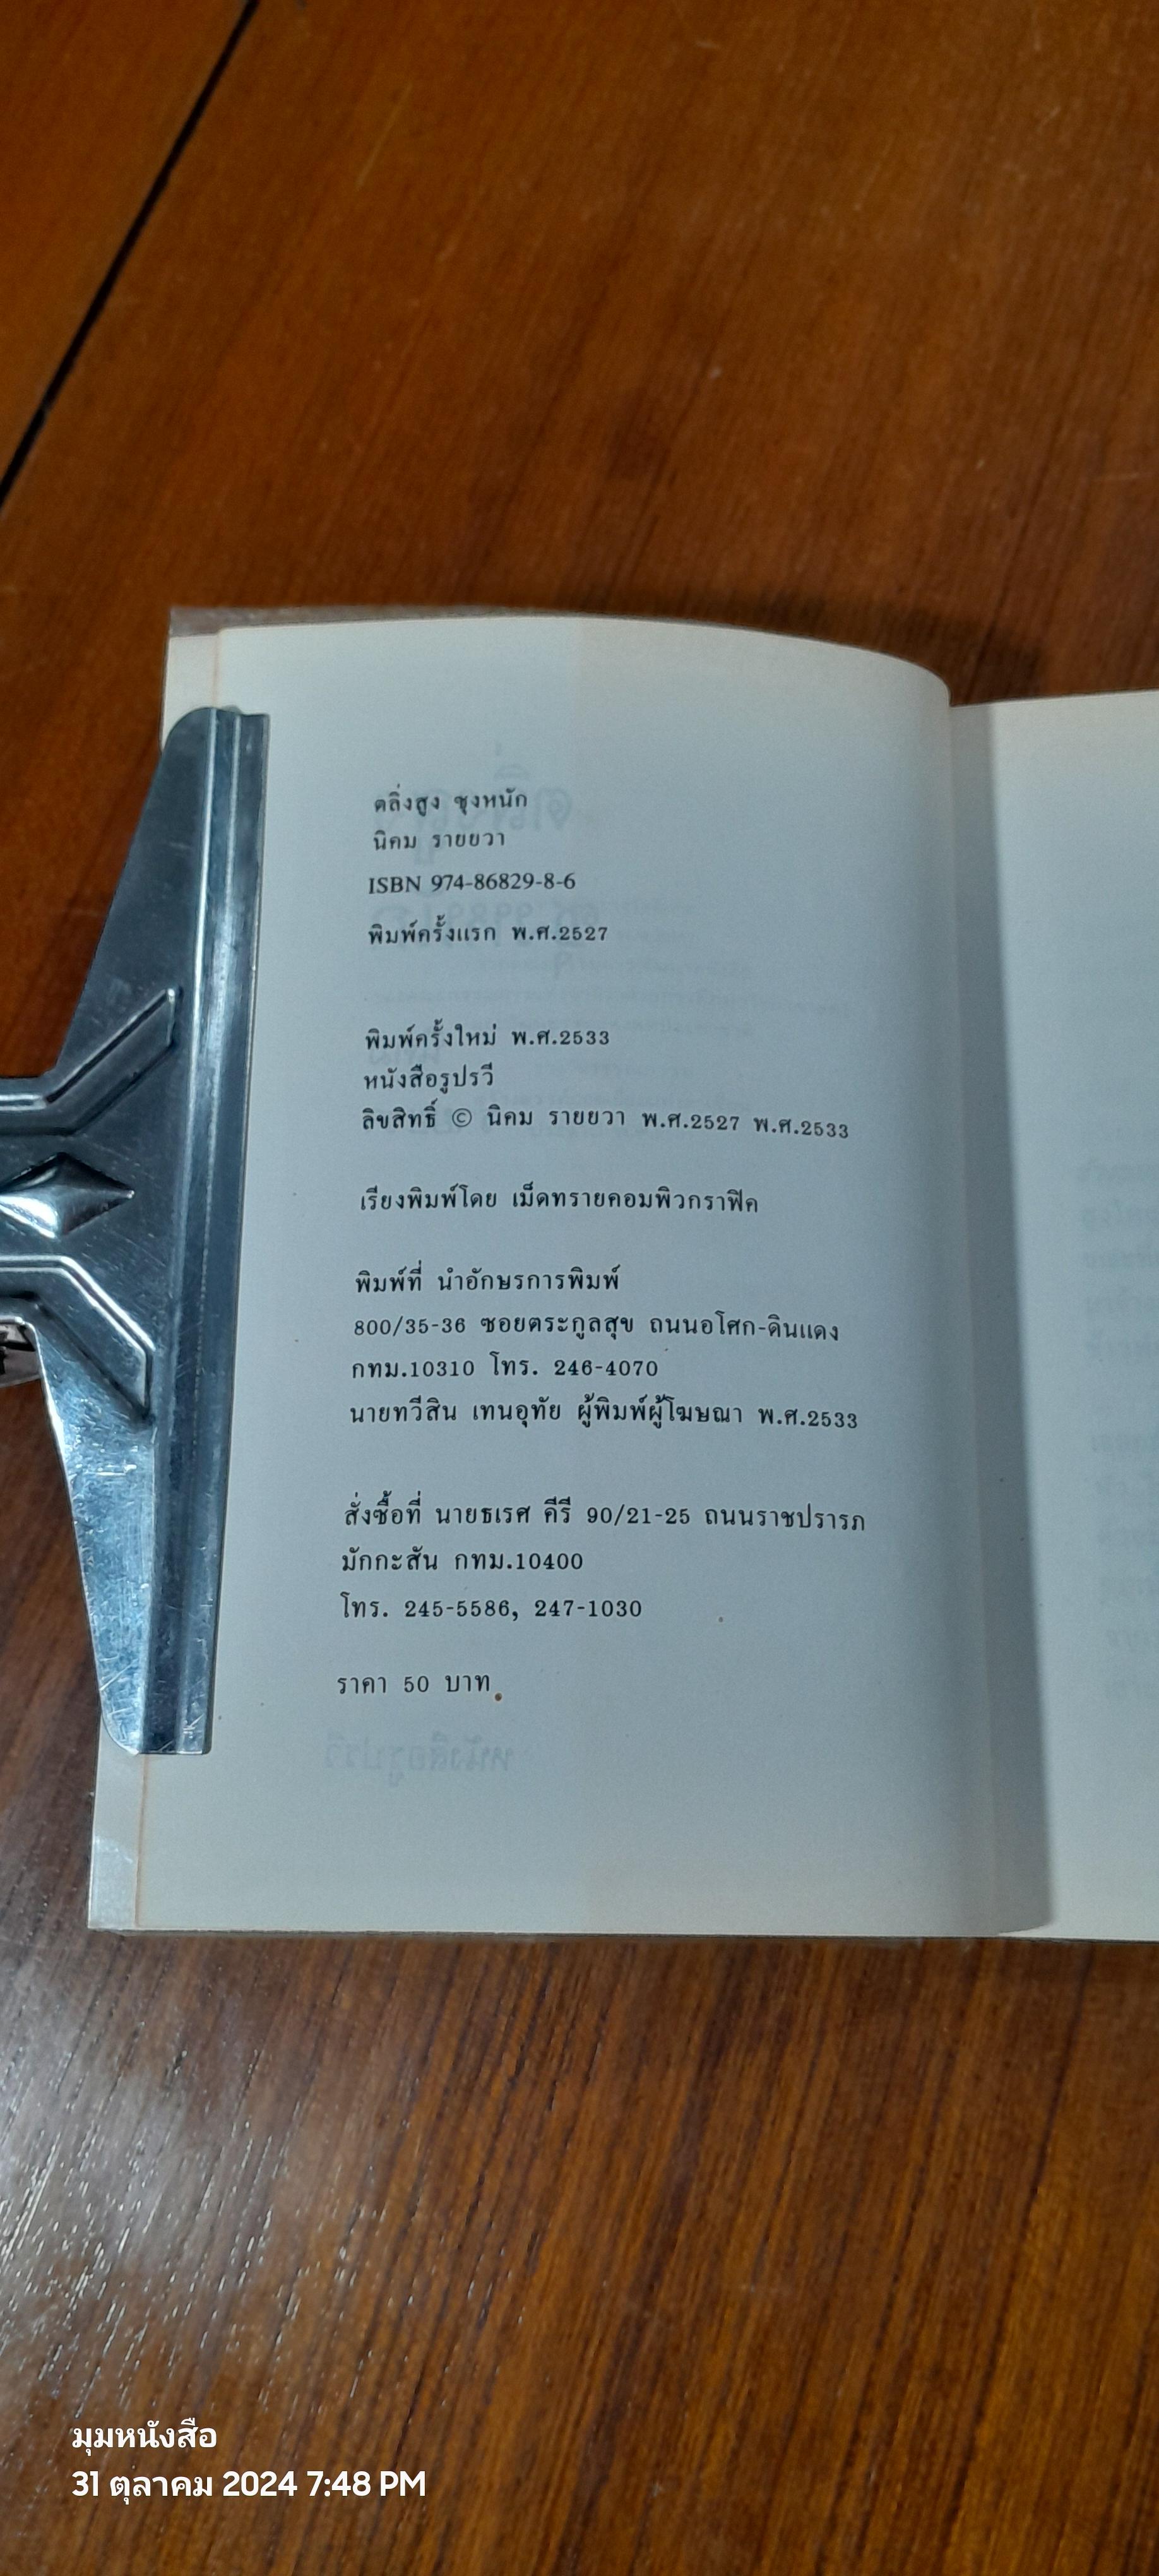 ตลิ่งสูง ซุงหนัก
นิคม รายยวา
ISBN 974-86829-8-6
พิมพ์ครั้งแรก พ.ศ.2527
พิมพ์ครั้งใหม่ พ.ศ.2533
หนังสือรูปรวี
ลิขสิทธิ์ © นิคม รายยวา พ.ศ.2527 พ.ศ.2533
เรียงพิมพ์โดย เม็ดทรายคอมพิวกราฟิค
พิมพ์ที่ นำอักษรการพิมพ์
800/35-36 ซอยตระกูลสุข ถนนอโศก-ดินแดง
กทม.10310 โทร. 246-4070
นายทวีสิน เทนอุทัย ผู้พิมพ์ผู้โฆษณา พ.ศ.2533
สั่งซื้อที่ นายธเรศ คีรี 90/21-25 ถนนราชปรารภ
มักกะสัน กทม.10400
โทร. 245-5586, 247-1030
ราคา 50 บาท
มุมหนังสือ
31 ตุลาคม 2024 7:48 PM